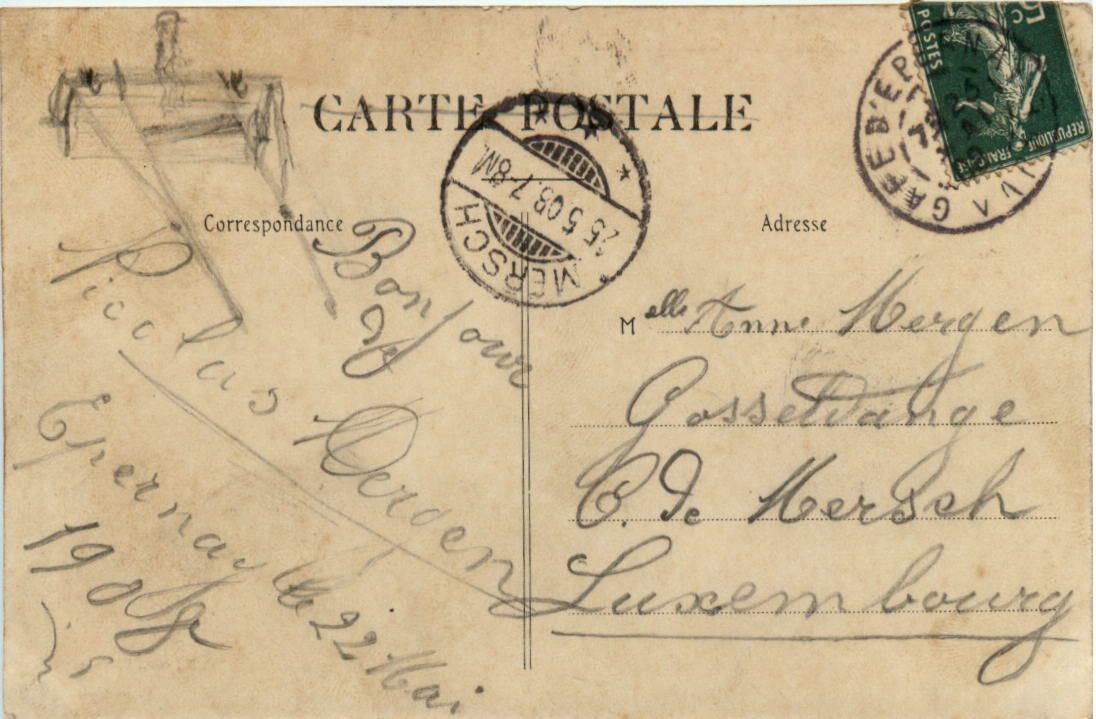 CARTE POSTALE
Correspondance
Adresse
5c
POSTES
REPUBLIQUE FRANCAISE
MERSCH
25.5.08.7-8M.
Bonjour
De
Nicolas
Epernay le 22 Mai
1908
Melle Anne Mergen
Gosseldange
C. De Mersch
Luxembourg